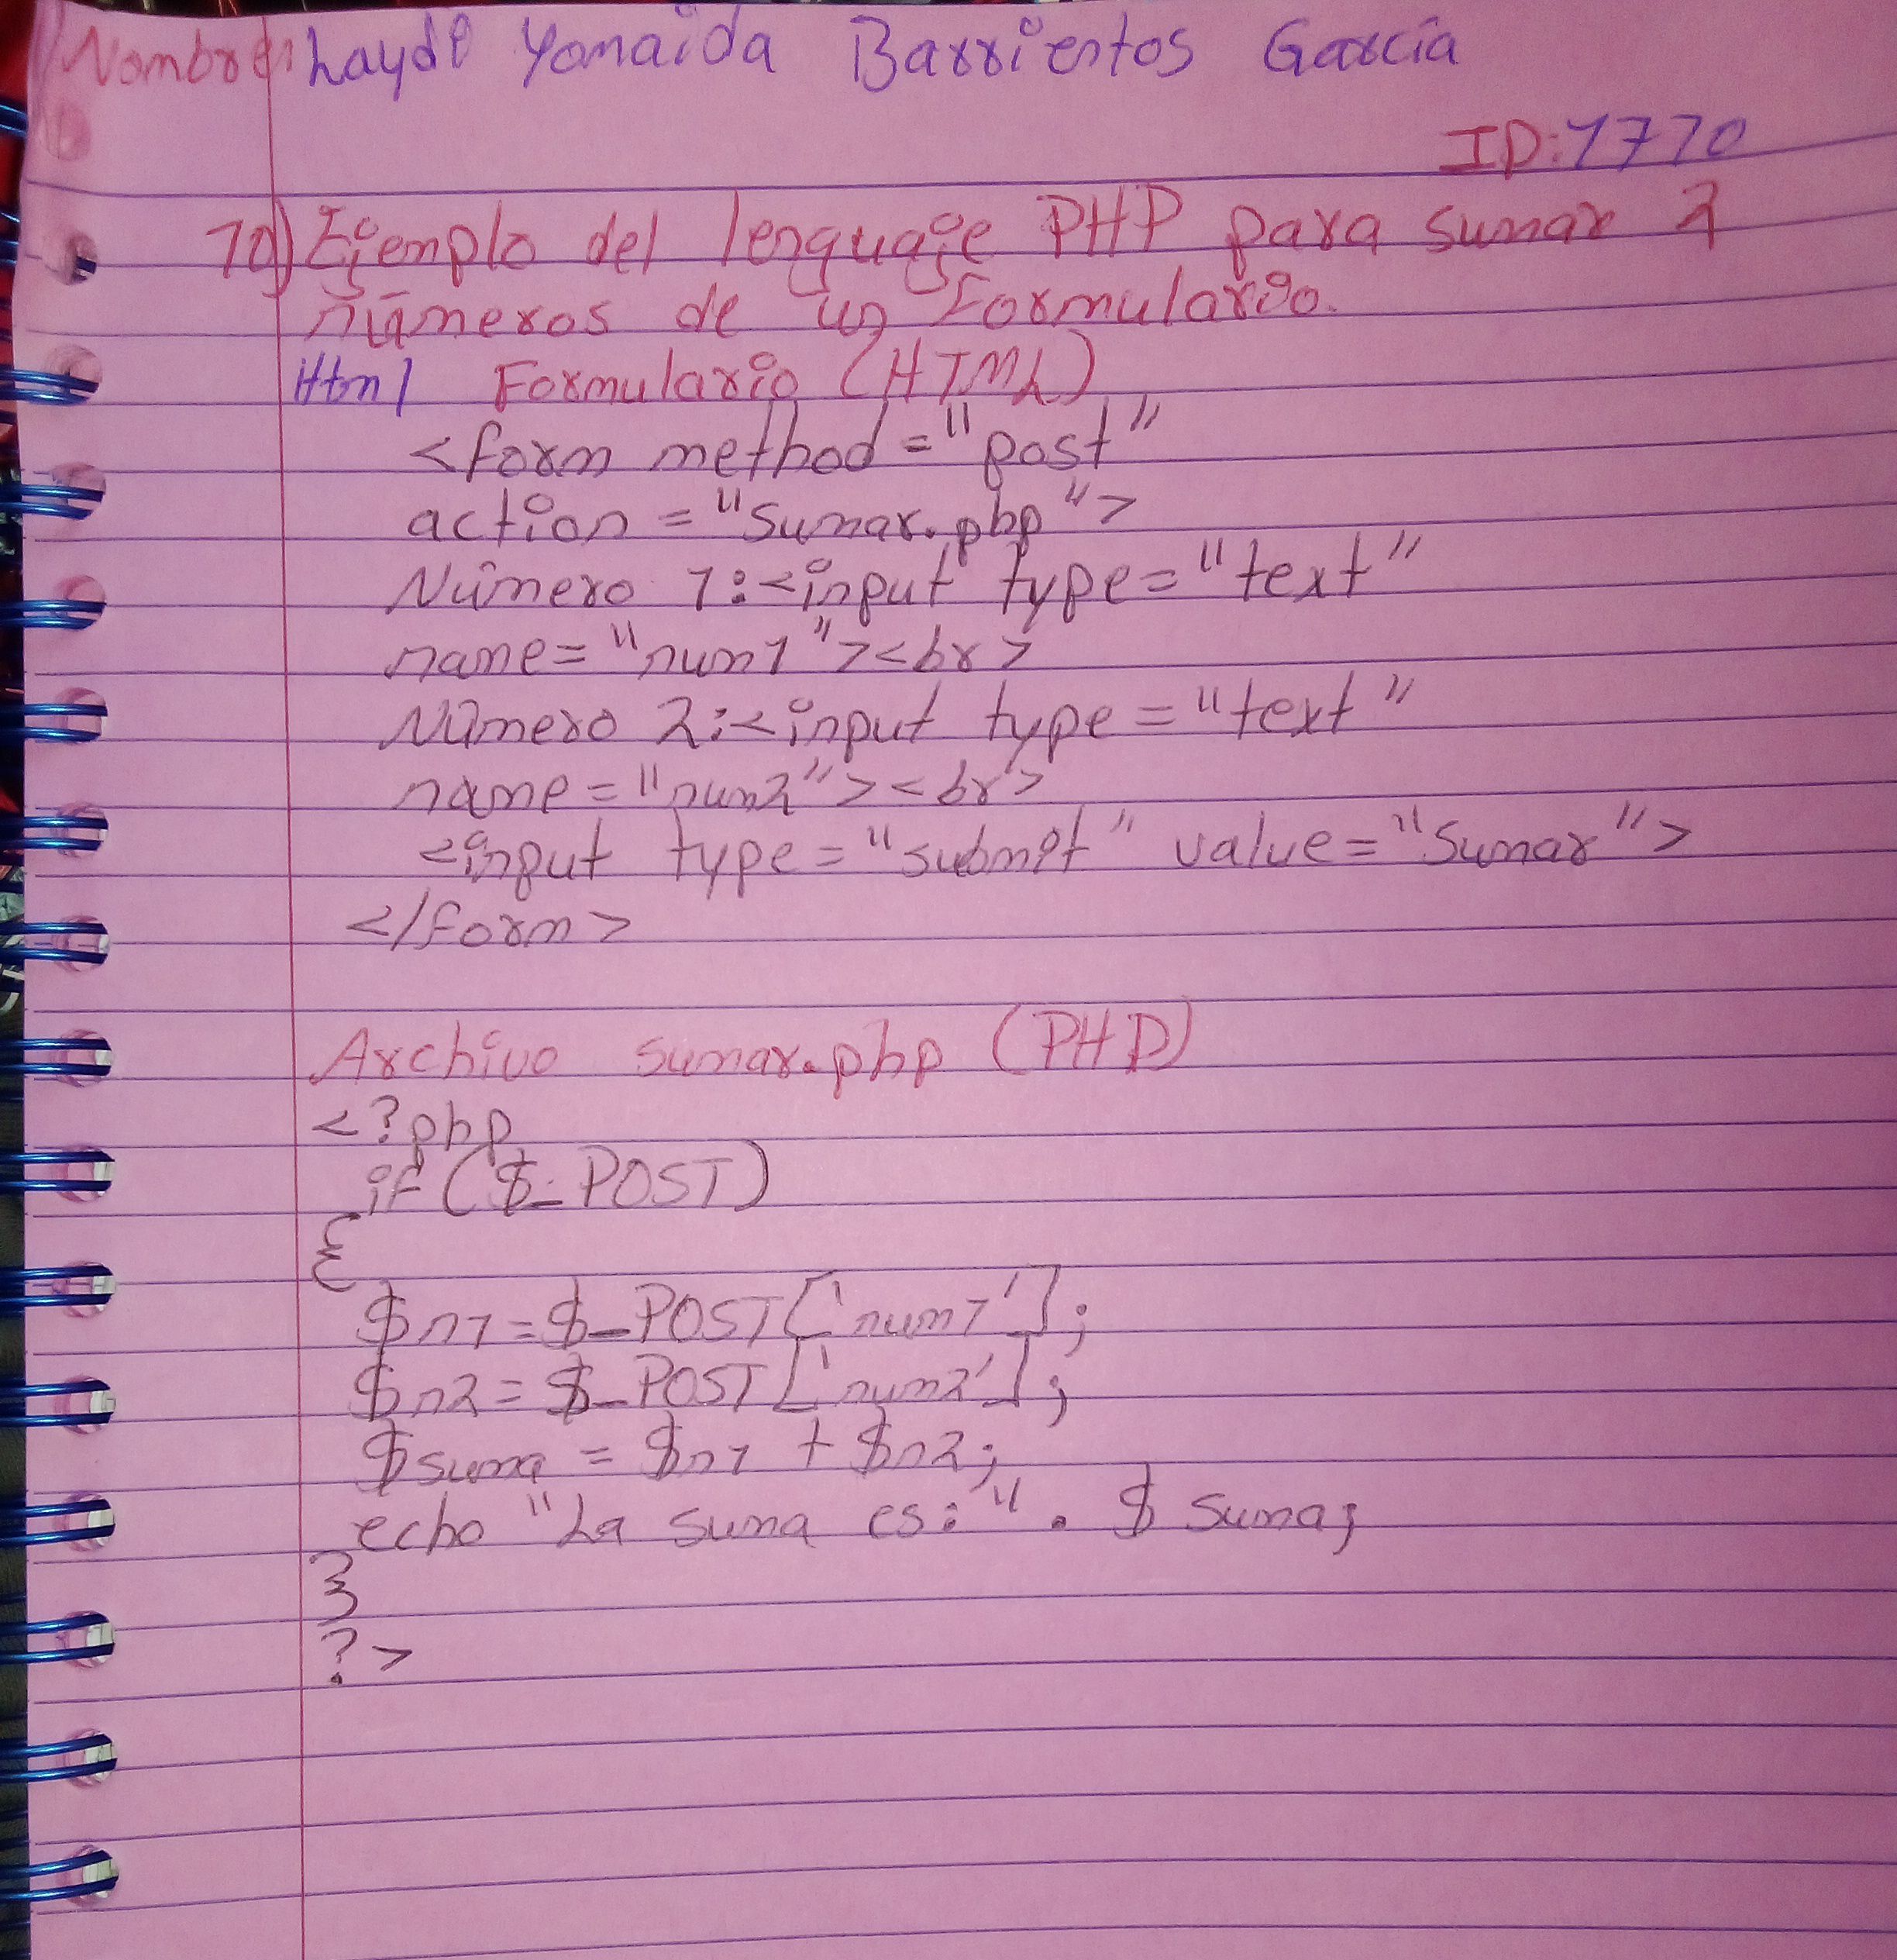 Nombre: Laydi Yomaida Barrientos García
ID: 1770
10) Ejemplo del lenguaje PHP para sumar 2
números de un Formulario.
Html Formulario (HTML)
<form method="post"
action="sumar.php">
Número 1:<input type="text"
name="num1"><br>
Número 2:<input type="text"
name="num2"><br>
<input type="submit" value="Sumar">
</form>
Archivo sumar.php (PHP)
<?php
if ($_POST)
{
$n1=$_POST['num1'];
$n2=$_POST['num2'];
$suma = $n1 + $n2;
echo "La suma es:" . $ suma;
}
?>